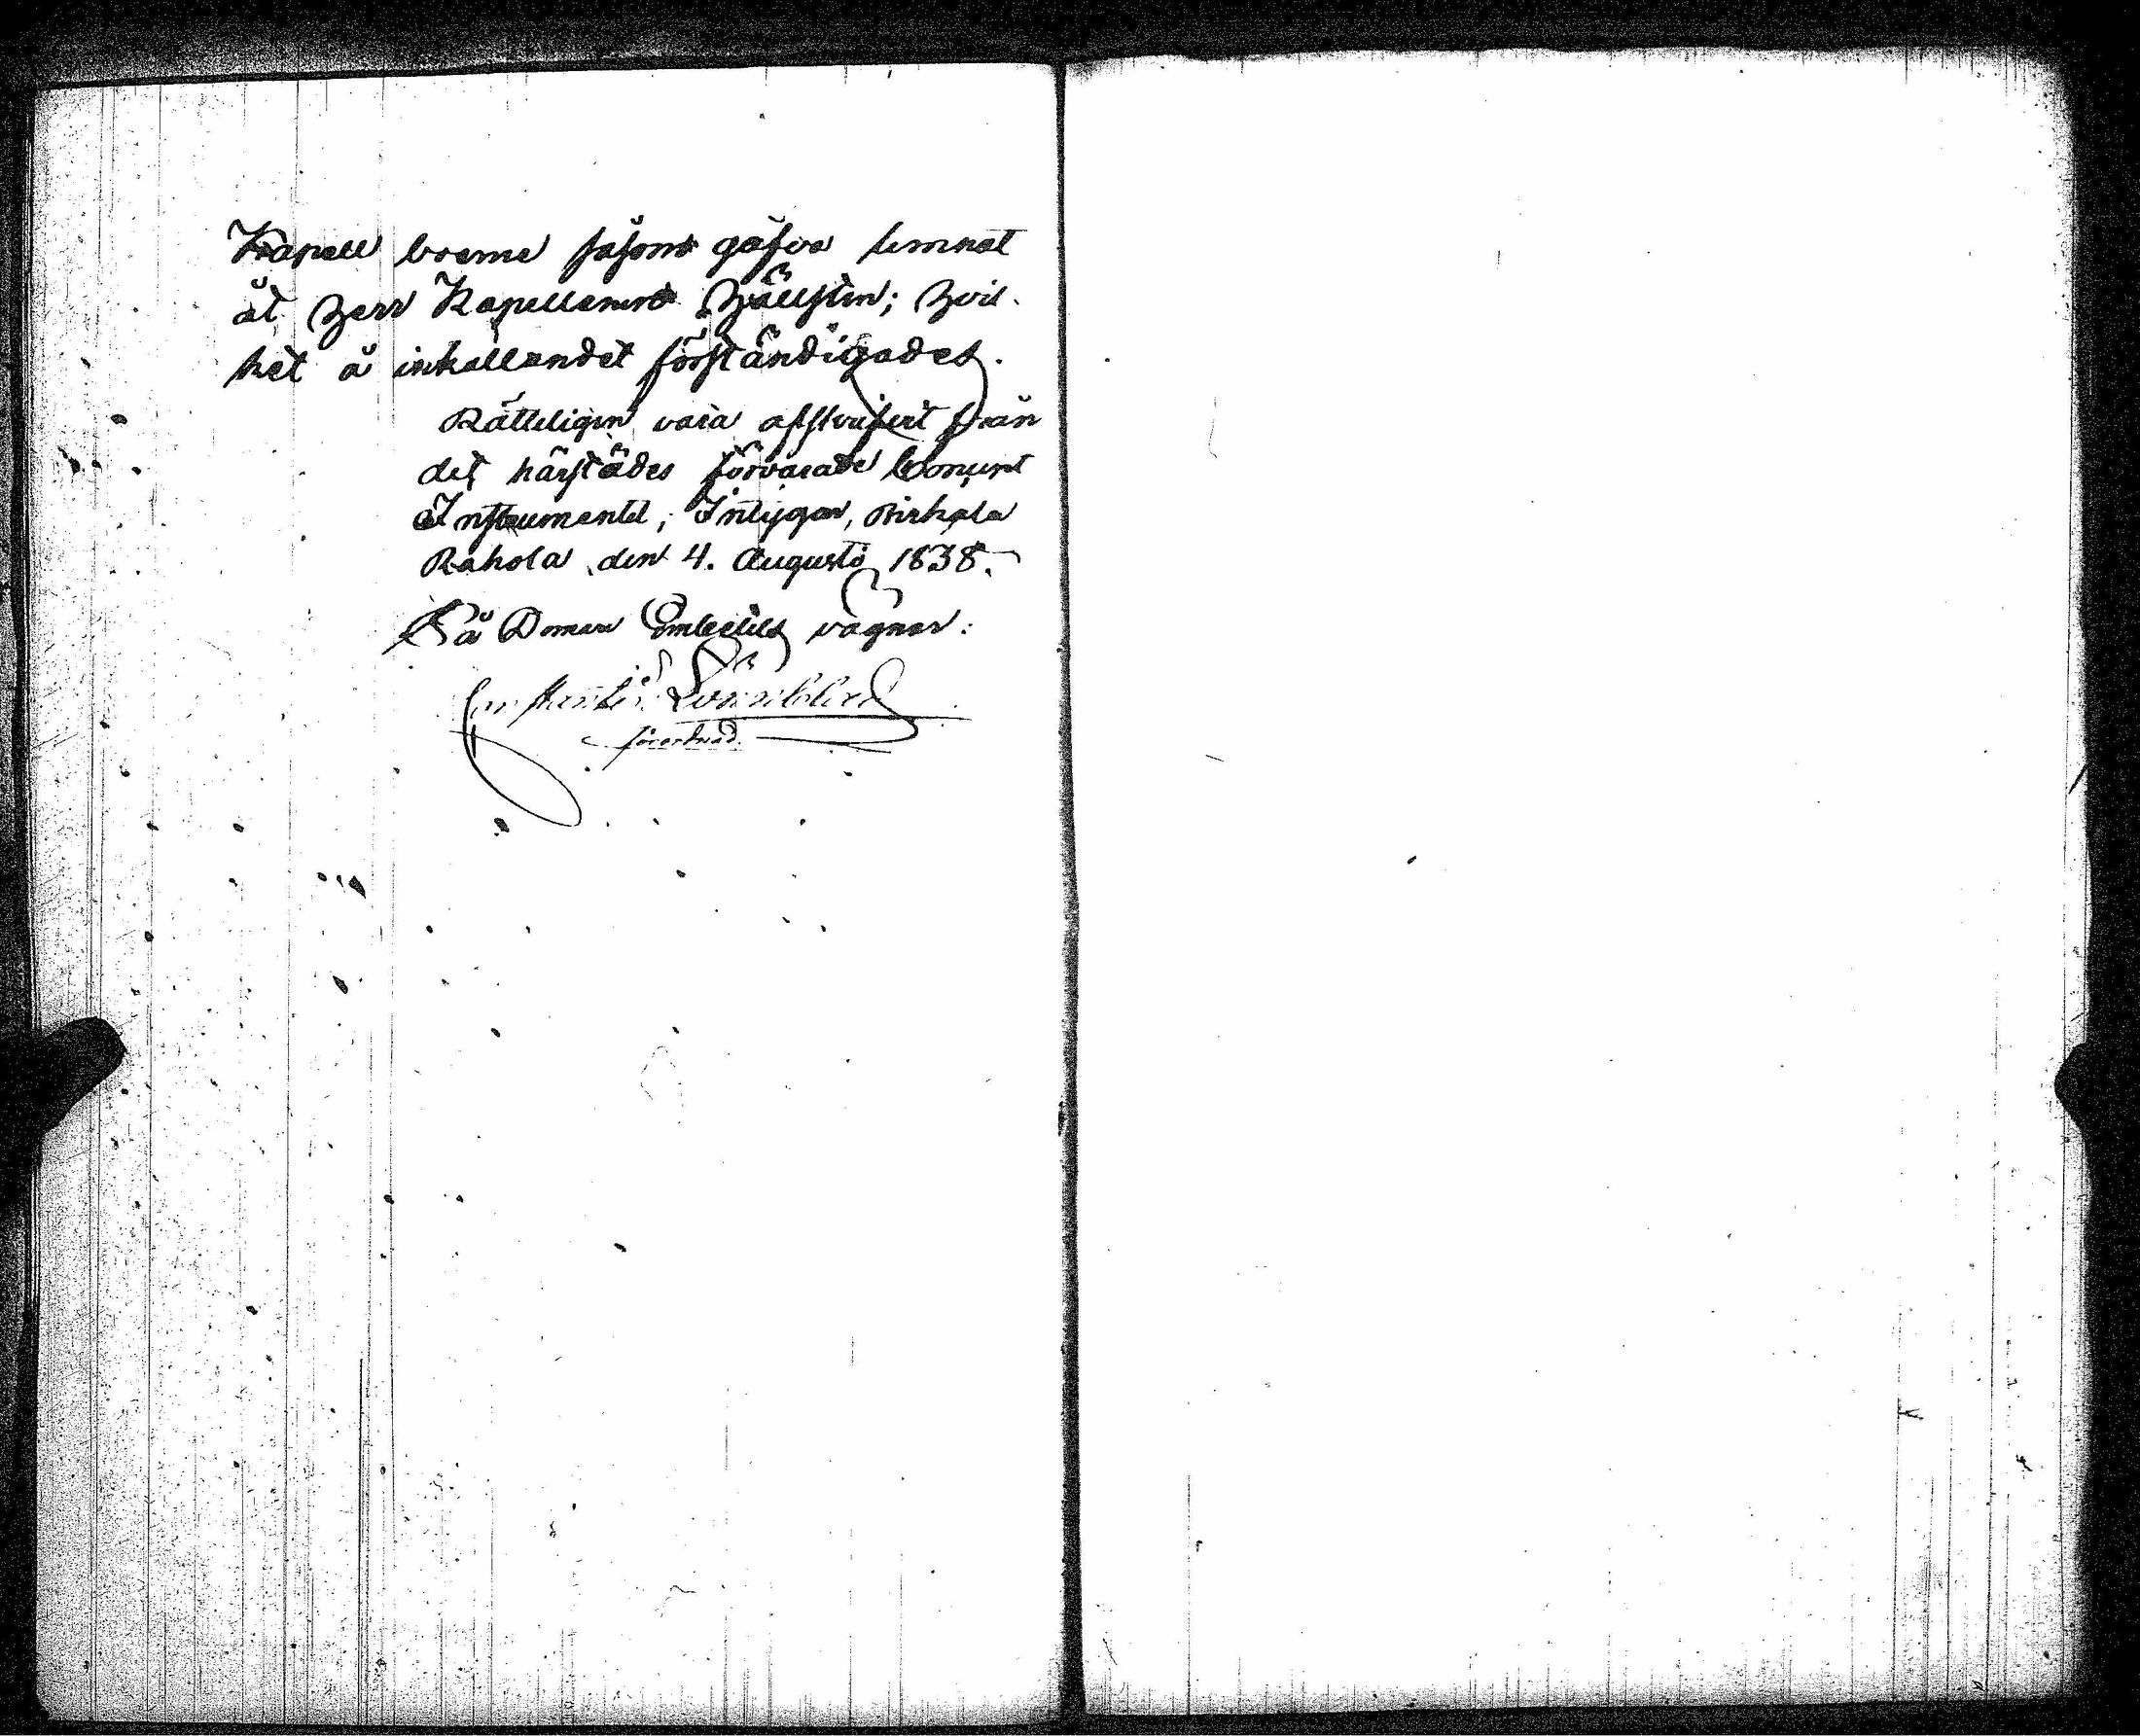 Kapell boerne såsom gåfva lemnat
åt Herr Kapellanen Hällsten; hvil-
ket å inkallandet förständigades.
Rätteligen vara afskrifvit från
det härstädes förvarade Concept
Instrumentet; intygar, Birkala
Rahola den 4. Augusti 1838.
På Domare Embetets vägnar:
förordnad.